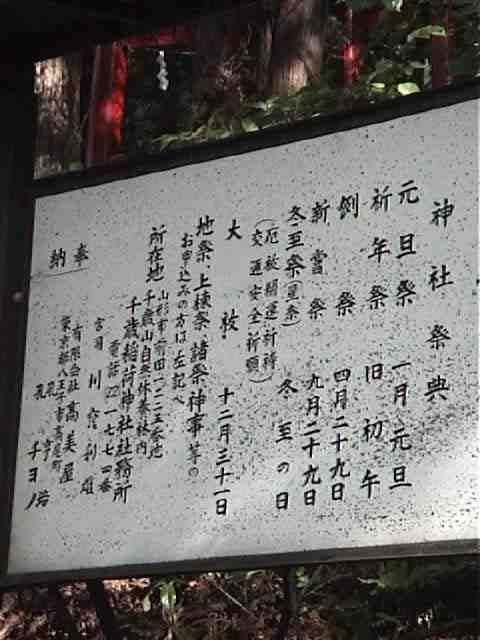 神社祭典
元旦祭 一月元旦
祈年祭 旧初午
例祭 四月二十九日
新嘗祭 九月二十九日
冬至祭(星祭) 冬至の日
(厄祓開運祈祷
交通安全祈願)
大祓 十二月三十一日
地祭・上棟祭・諸祭神事等の
お申込みの方は左記へ
所在地 山形市前田一二
千歳山自然休養林内
千歳稲荷神社社務所
電話
宮司
奉納
有限会社高美屋
東京都八王子市
チヨノ